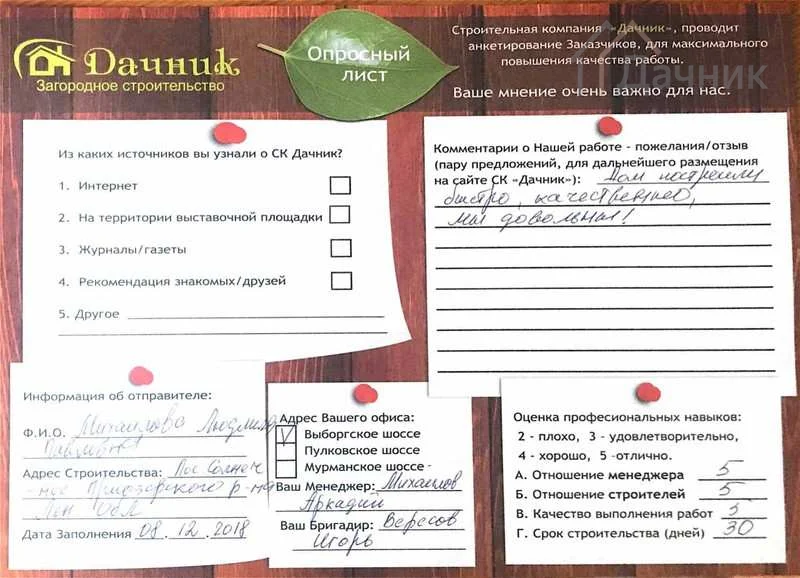 Дачник
Загородное строительство
Опросный
лист
Строительная компания «Дачник», проводит
анкетирование Заказчиков, для максимального
повышения качества работы.
Дачник
Ваше мнение очень важно для нас.
Из каких источников вы узнали о СК Дачник?
1. Интернет
2. На территории выставочной площадки
3. Журналы/газеты
4. Рекомендация знакомых/друзей
5. Другое
Комментарии о Нашей работе - пожелания/отзыв
(пару предложений, для дальнейшего размещения
на сайте СК «Дачник»): Дом построили
быстро, качественно,
мы довольны!
Информация об отправителе:
Ф.И.О. Михайлова Людмила
Павловна
Адрес Строительства: Пос Солнеч
-ное Приозерского р-на
Лен Обл
Дата Заполнения 08.12.2018
Адрес Вашего офиса:
V Выборгское шоссе
Пулковское шоссе
Мурманское шоссе
Ваш Менеджер: Михайлов
Аркадий
Ваш Бригадир: Вересов
Игорь
Оценка професиональных навыков:
2 - плохо, 3 - удовлетворительно,
4 - хорошо, 5 -отлично.
А. Отношение менеджера 5
Б. Отношение строителей 5
В. Качество выполнения работ 5
Г. Срок строительства (дней) 30